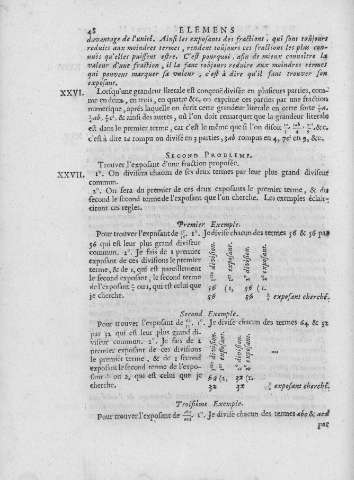 48 ELEMENS
davantage de l'unité. Ainsi les exposants des fractions, qui sont toûjours
reduits aux moindres termes, rendent toûjours ces fractions les plus con-
nuës qu'elles puissent estre. C'est pourquoi, afin de mieux connoître la
valeur d'une fraction, il la faut toûjours reduire aux moindres termes
qui peuvent marquer sa valeur, c'est à dire qu'il faut trouver son
exposant.
XXVI. Lorsqu'une grandeur litterale est conçuë divisée en plusieurs parties, com-
me en deux, en trois, en quatre &c, on exprime ces parties par une fraction
numerique, aprés laquelle on écrit cette grandeur litterale en cette sorte
&c. & ainsi des autres, où l'on doit remarquer que la grandeur litterale
est dans le premier terme, car c'est le même que si l'on disoit &c.
c'est à dire ou divisé en 2 parties, 3ab en 4, en 9, &c.
SECOND PROBLEME.
Trouver l'exposant d'une fraction proposée.
XXVII. 1°. On divisera chacun de ses deux termes par leur plus grand diviseur
commun.
2°. On fera du premier de ces deux exposants le premier terme, & du
second le second terme de l'exposant que l'on cherche. Les exemples éclair-
ciront ces regles.
Premier Exemple.
Pour trouver l'exposant de 1°. Je divise chacun des termes 56 & 56 par
56 qui est leur plus grand diviseur
commun. 2°. Je fais de 1 premier
exposant de ces divisions le premier
terme, & de 1, qui est pareillement
le second exposant, le second terme
de l'exposant ou 1, qui est celui que
je cherche.
1° division.
1° exposant
2° division.
2° exposant
56 (1, 56 (1.
56 56 exposant cherché.
Second Exemple.
Pour trouver l'exposant de 1°. Je divise chacun des termes 64 & 32
par 32 qui est leur plus grand di-
viseur commun. 2°. Je fais de 2
premier exposant de ces divisions
le premier terme, & de 1 second
exposant le second terme de l'expo-
sant ou 2, qui est celui que je
cherche.
1° division.
1° exposant.
2° division.
2° exposant.
64 (2, 32 (1.
32 32 exposant cherché.
Troisiéme Exemple.
Pour trouver l'exposant de 1°. Je divise chacun des termes abc & acd
par